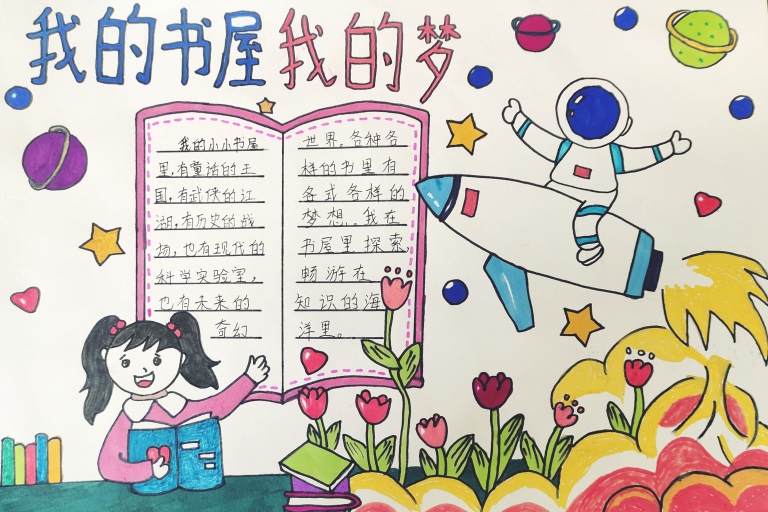 我的书屋 我的梦
我的小小书屋
里,有童话的王
国,有武侠的江
湖,有历史的战
场,也有现代的
科学实验室,
也有未来的
奇幻
世界。各种各
样的书里有
各式各样的
梦想。我在
书屋里探索,
畅游在
知识的海
洋里。